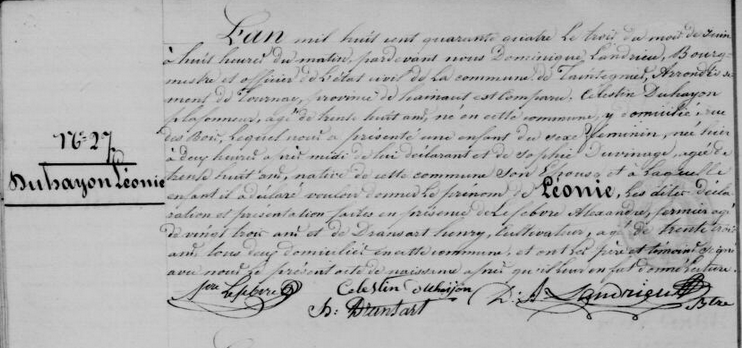 L'an mil huit cent quarante quatre le trois du mois de Juin
à huit heures du matin, pardevant nous Dominique Landrieu, Bourg-
mestre et officier de l'état civil de la commune de Taintegnies, Arrondisse
ment de Tournay, province de hainaut est comparu Célestin Duhayon
âgé de trente huit ans, né en cette commune, y domicilié, rue
des Bois, Lequel nous a présenté une enfant du sexe feminin, née hier
à deux heures après midi de lui déclarant et de Sophie Duvinage, agée de
trente huit ans, native de cette commune Son Epouse et à laquelle
enfant il a déclaré vouloir donner le prénom de Léonie, les dites décla
ration et présentation faites en présence de Lefebvre Alexandre, fermier agé
de vingt trois ans et de Dransart henry, Cultivateur, agé de trente trois
ans tous deux domiciliés en cette commune, et ont les père et témoins signé
avec nous le présent acte de naissance après qu'il leur en fut donné lecture.
N° 27
Duhayon Léonie
Lefebvre
Celestin duhayon
D: A: Landrieu
h: Dransart
Bre